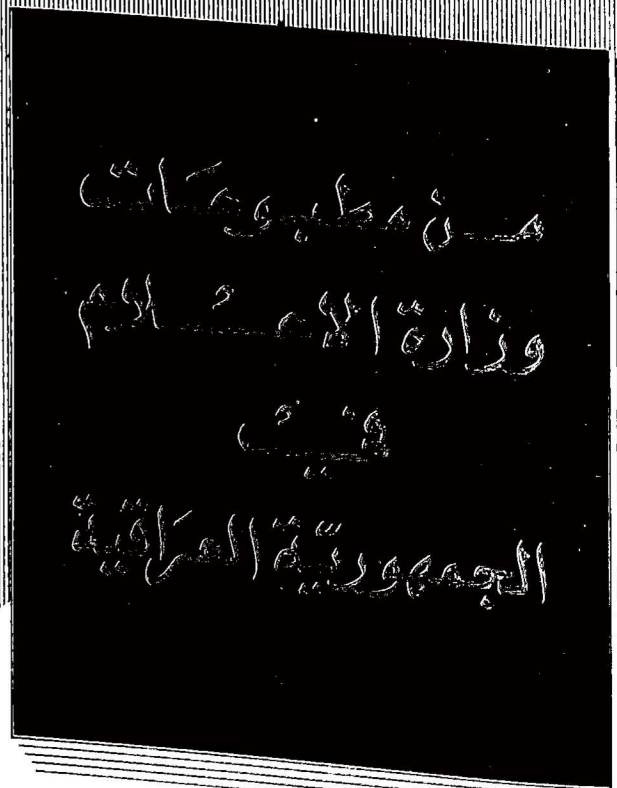 من مطبوعات
وزارة الإعلام
في
الجمهوريّة العراقيّة